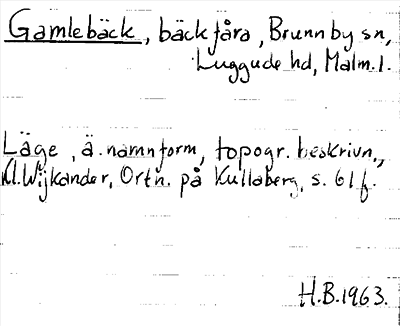 Gamlebäck, bäckfåra, Brunnby sn,
Luggude hd, Malm.l.
Läge, ä. namnform, topogr. beskrivn.,
Wijkander, Ortn. på Kullaberg, s. 61 f.
H.B.1963.